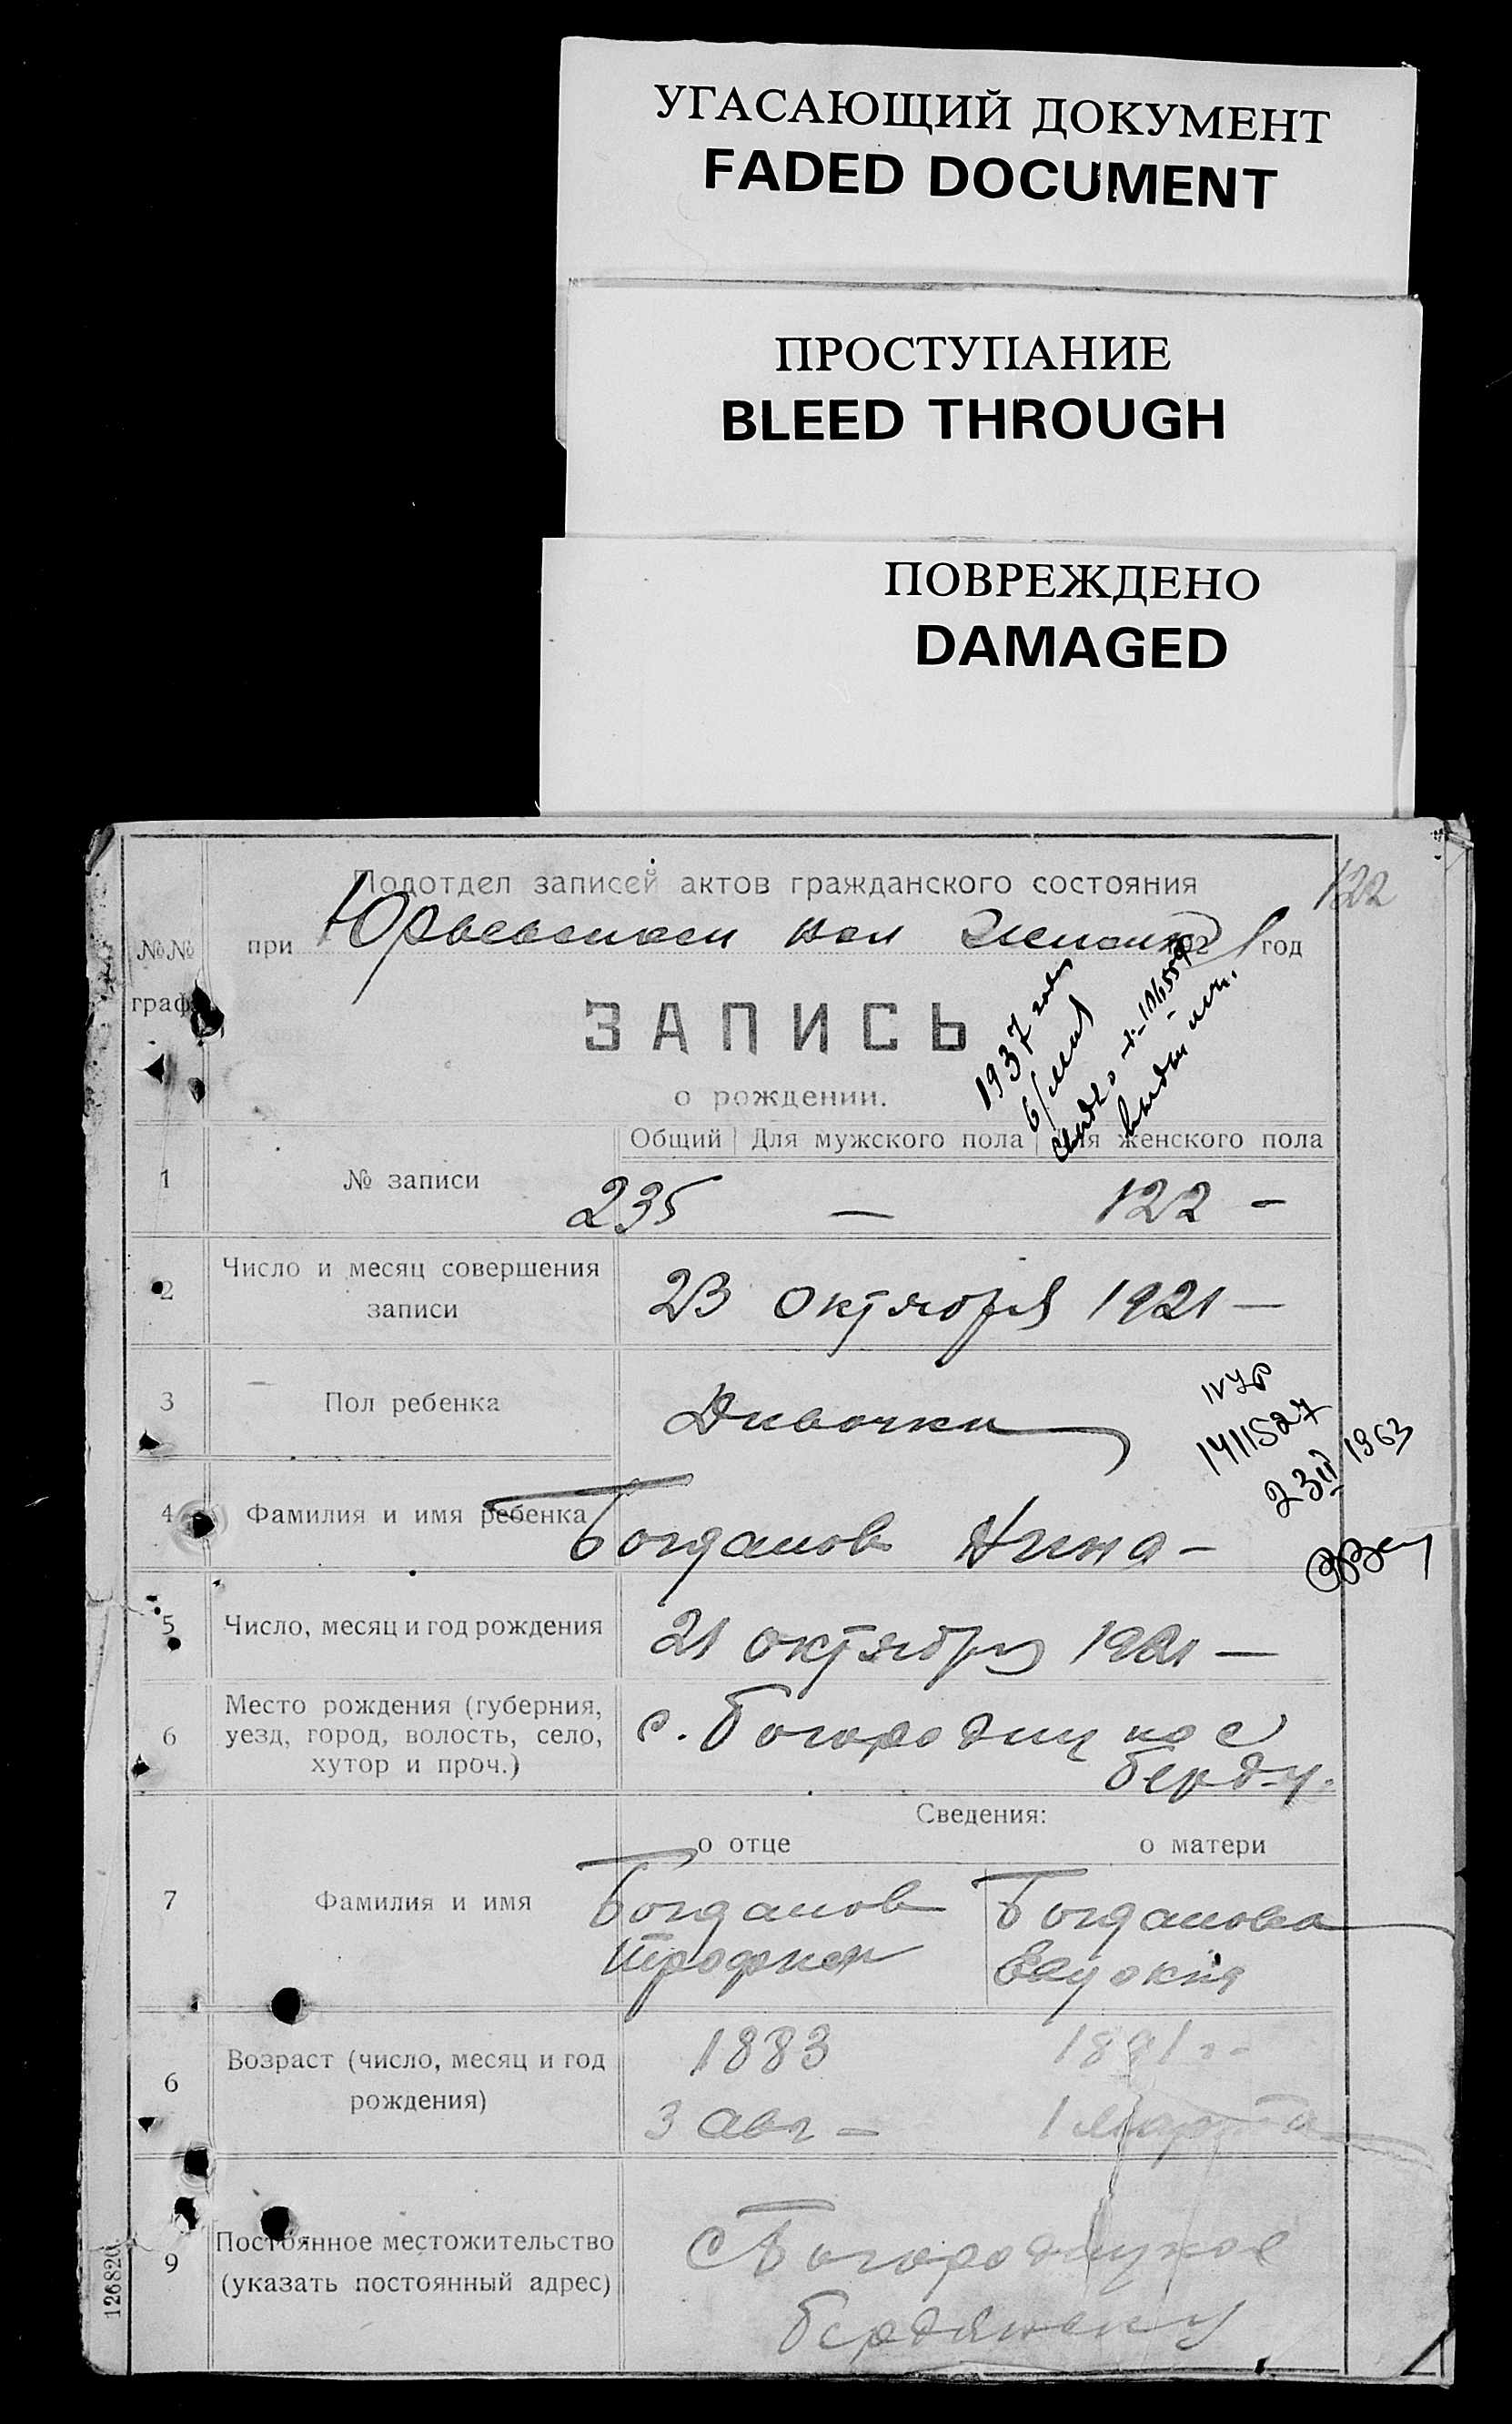 УГАСАЮЩИЙ ДОКУМЕНТ
FADED DOCUMENT
ПРОСТУПАНИЕ
BLEED THROUGH
ПОВРЕЖДЕНО
DAMAGED
122
Подотдел записей актов гражданского состояния
№№ граф
при Юрьевском вол год
ЗАПИСЬ
о рождении.
1937 года
Общий Для мужского пола Для женского пола
1 № записи 235 — 122 –
2 Число и месяц совершения записи 23 октября 1921 —
3 Пол ребенка Дивочка
1411527
23 IV 1963
4 Фамилия и имя ребенка Богданов Нина –
5 Число, месяц и год рождения 21 октября 1921 —
6 Место рождения (губерния, уезд, город, волость, село, хутор и проч.) с. Богородицкое
Берд. у.
Сведения:
о отце о матери
7 Фамилия и имя Богданов Богданова
Трофим Евдокия
6 Возраст (число, месяц и год рождения) 1883 1891 г-
3 авг – 1 марта
9 Постоянное местожительство (указать постоянный адрес) с Богородицкое
Бердянску
126820